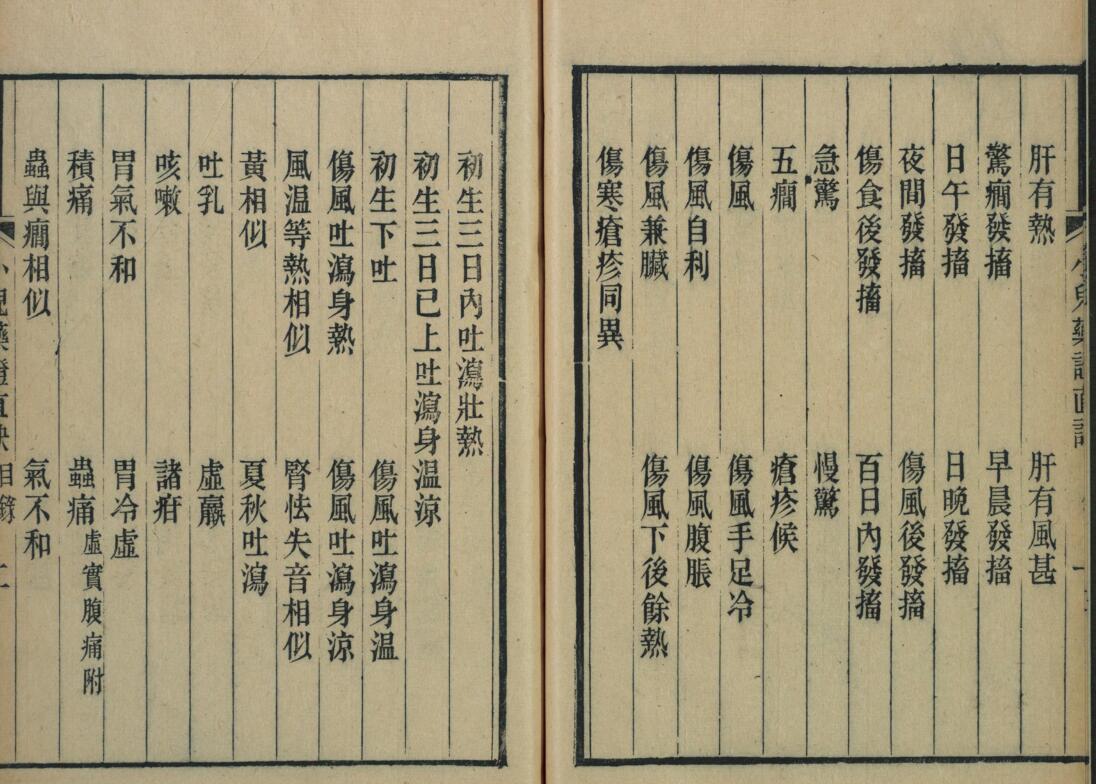 小兒藥證直訣 一
肝有熱 肝有風甚
驚癇發搐 早晨發搐
日午發搐 日晚發搐
夜間發搐 傷風後發搐
傷食後發搐 百日內發搐
急驚 慢驚
五癇 瘡疹候
傷風 傷風手足冷
傷風自利 傷風腹脹
傷風兼臟 傷風下後餘熱
傷寒瘡疹同異
初生三日內吐瀉壯熱
初生三日已上吐瀉身温涼
初生下吐 傷風吐瀉身温
傷風吐瀉身熱 傷風吐瀉身涼
風温等熱相似 腎怯失音相似
黃相似 夏秋吐瀉
吐乳 虛羸
咳嗽 諸疳
胃氣不和 胃冷虛
積痛 蟲痛虛實腹痛附
蟲與癇相似 氣不和
小兒藥證直訣 目錄 二